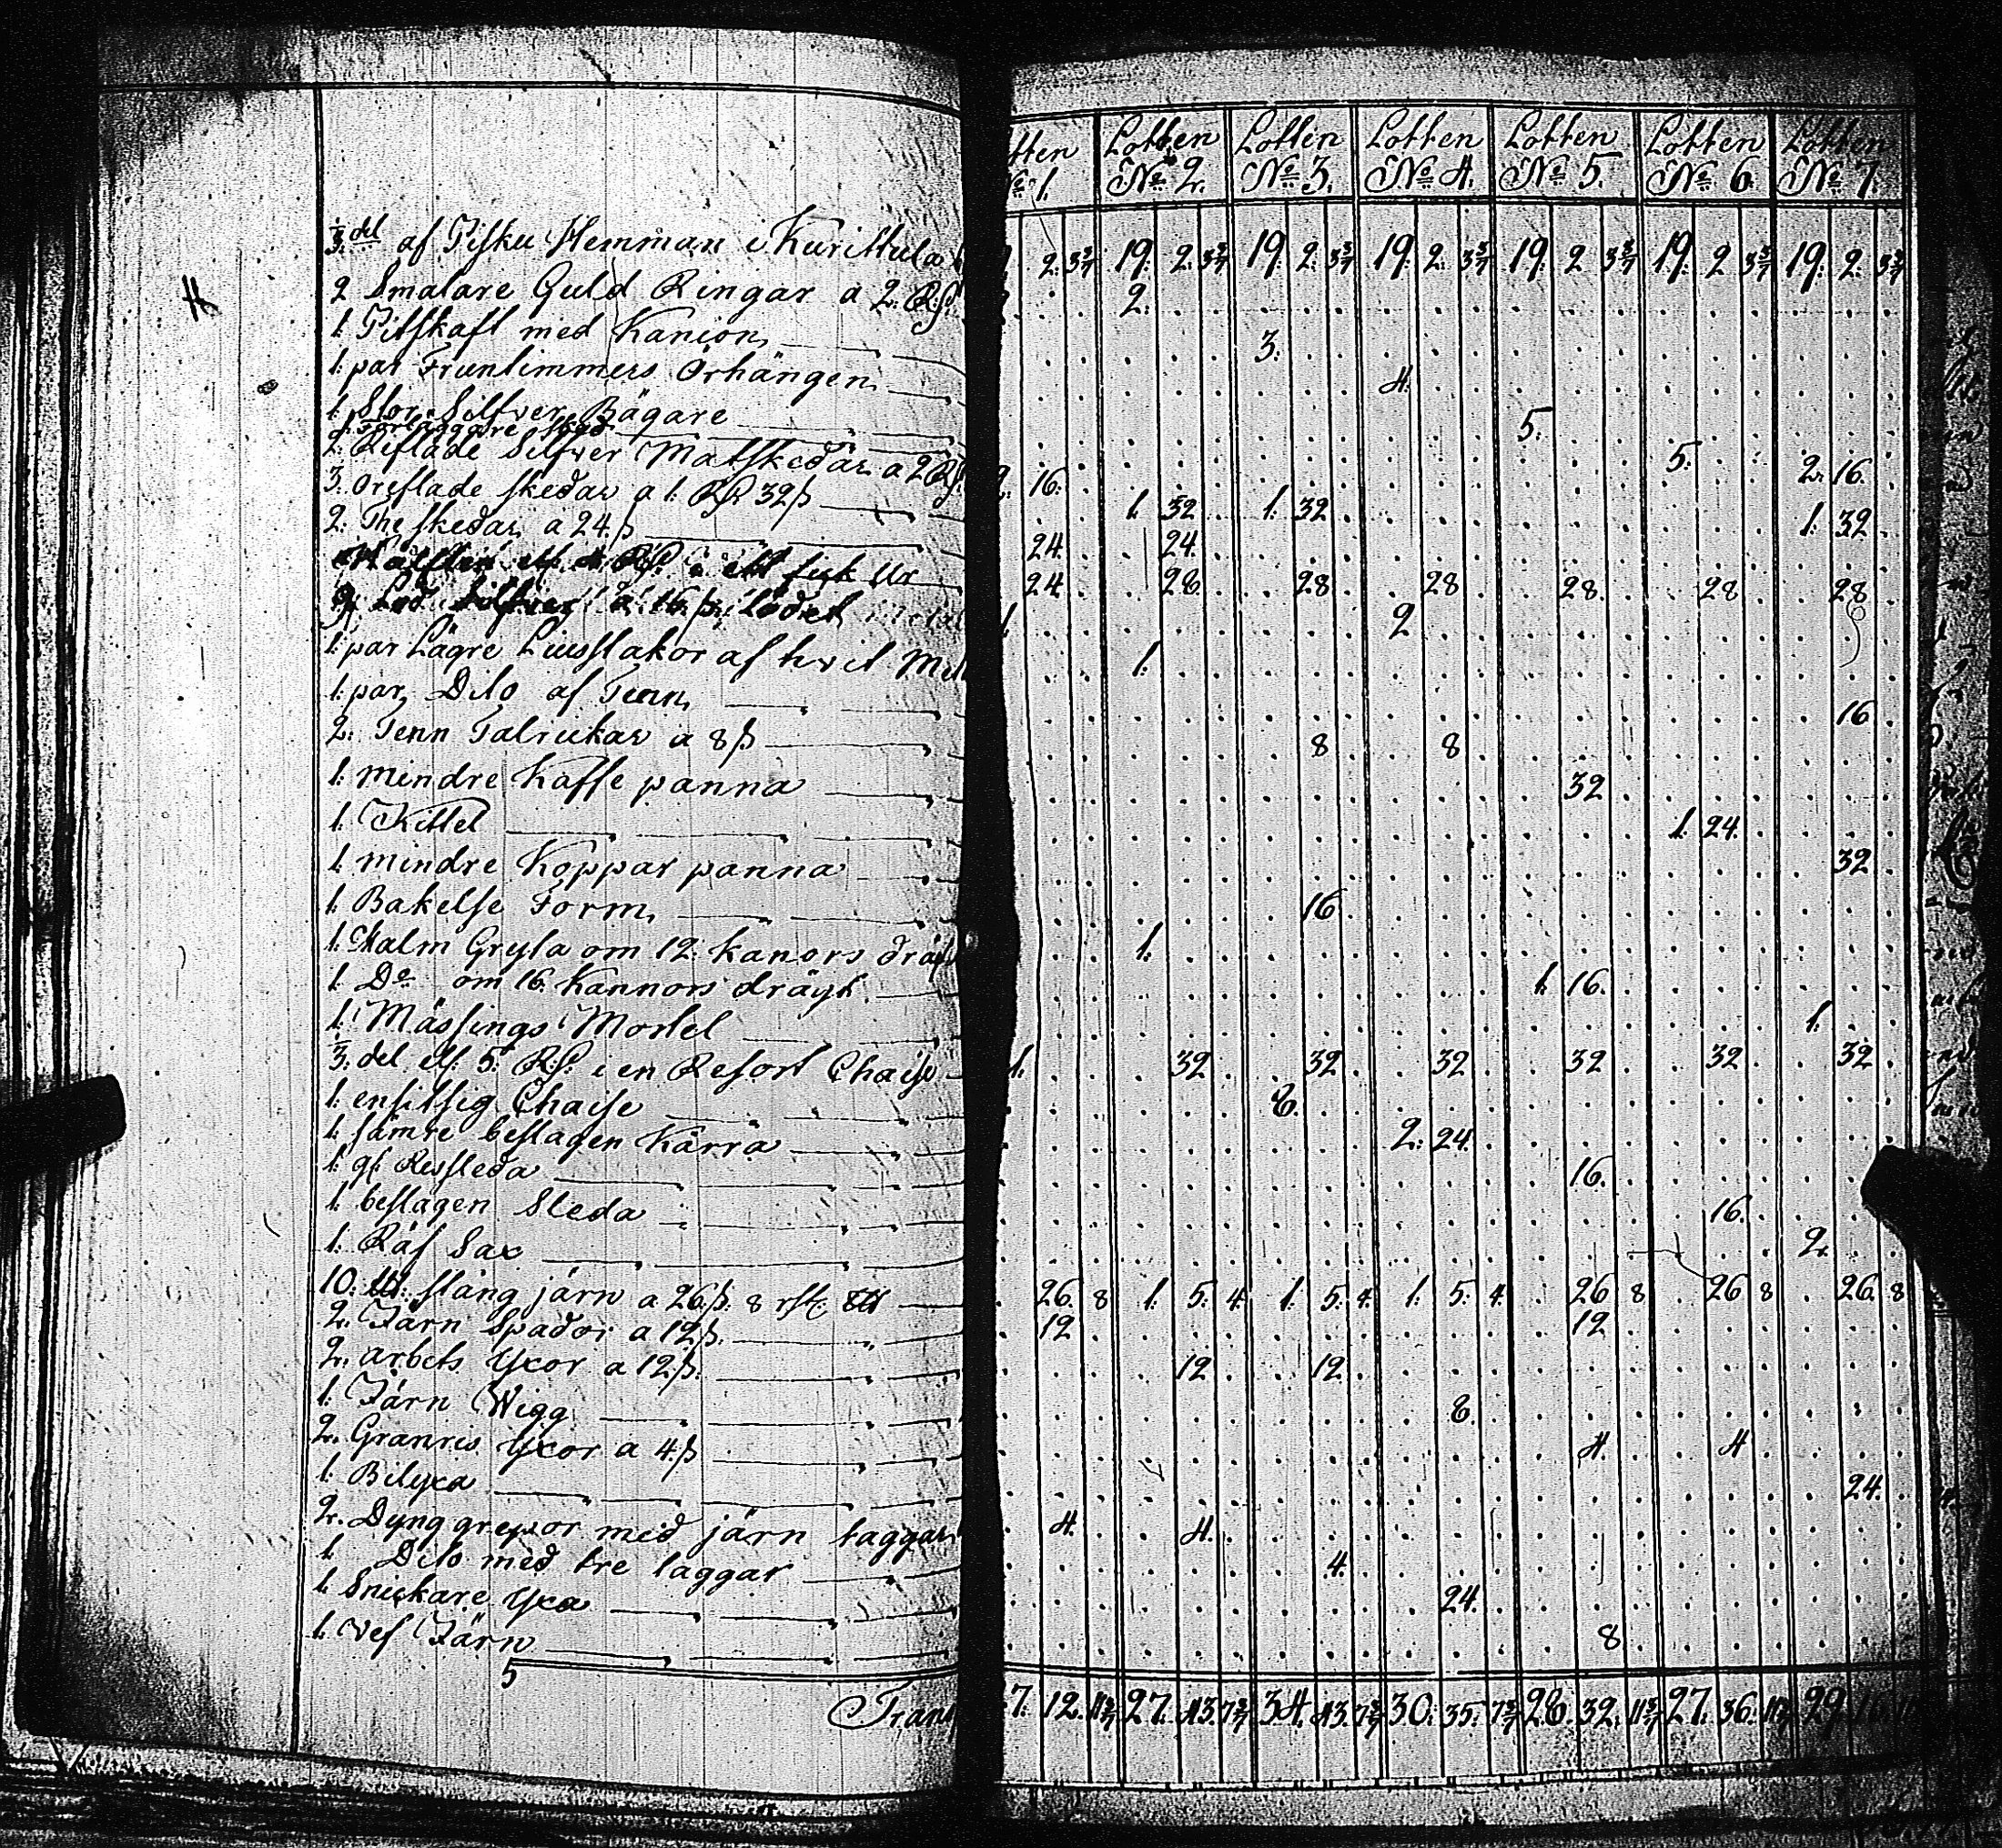 1/3 del af Pisku Hemman i Kurittula
2 Smalare Guld Ringar a 2. Rd
1. Pitskaft med Kanion
1. par Fruntimmers Örhängen
1. Stor Silfver Bägare
1. Förläggare sked
2. Reflade Silfver Matskedar a 2 Rd
3. oreflade skedar a 1. Rd 32 s
2. The skedar a 24. s
Hälften i ett fick Ur
Lod Silfver a 16 s. lodet
1. par Lägre Liusstakor af hvit
1. par Dito af Tenn
2. Tenn Talrickar a 8 s
1. mindre Kaffe panna
1. Kittel
1. mindre Koppar panna
1. Bakelse Form
1. Malm Gryta om 12. kanors
1. Do om 16. Kannors drägt
1. Mässings Mortel
1/3. del af 5. Rd. i en Resort Chaise
1. ensitsig Chaise
1. sämre beslagen Kärra
1. gl. Ressleda
1. beslagen Sleda
1. Räf Sax
10. stång järn a 26 s. 8 rst.
2. Järn Spador a 12 s.
2. arbets Yxor a 12 s.
1. Järn Wigg
2. Granris Yxor a 4. s
1. Bilyxa
2. Dynggrepor med järn taggar
1. Dito med tre taggar
1. Snickare Yxa
1. Vef Järn
5
Trans
tten Lotten Lotten Lotten Lotten Lotten Lotten
No 1. No 2. No 3. No 4. No 5. No 6. No 7.
2. 3 3/7 19. 2. 3 3/7 19. 2. 3 3/7 19. 2. 3 3/7 19. 2 3 3/7 19. 2 3 3/7 19. 2. 3 3/7
2.
3.
4.
5.
5.
2. 16. 2. 16.
1. 32 1. 32 1. 32
24. 24.
24. 28. 28 28 28. 28 28
1. 2
1.
16
8 8
32
1. 24.
32
16
1.
1. 16.
1.
1. 32 32 32 32 32 32
8.
2. 24.
16.
16.
2.
26. 8 1. 5. 4. 1. 5. 4. 1. 5. 4. 26 8 26 8 26. 8
12 12
12 12
8.
4. 4
24.
4. 4.
4.
24.
8
7. 12. 11 3/7 27. 43. 7 3/7 34. 43. 7 3/7 30. 35. 7 3/7 28. 32. 11 3/7 27. 36. 11 3/7 29